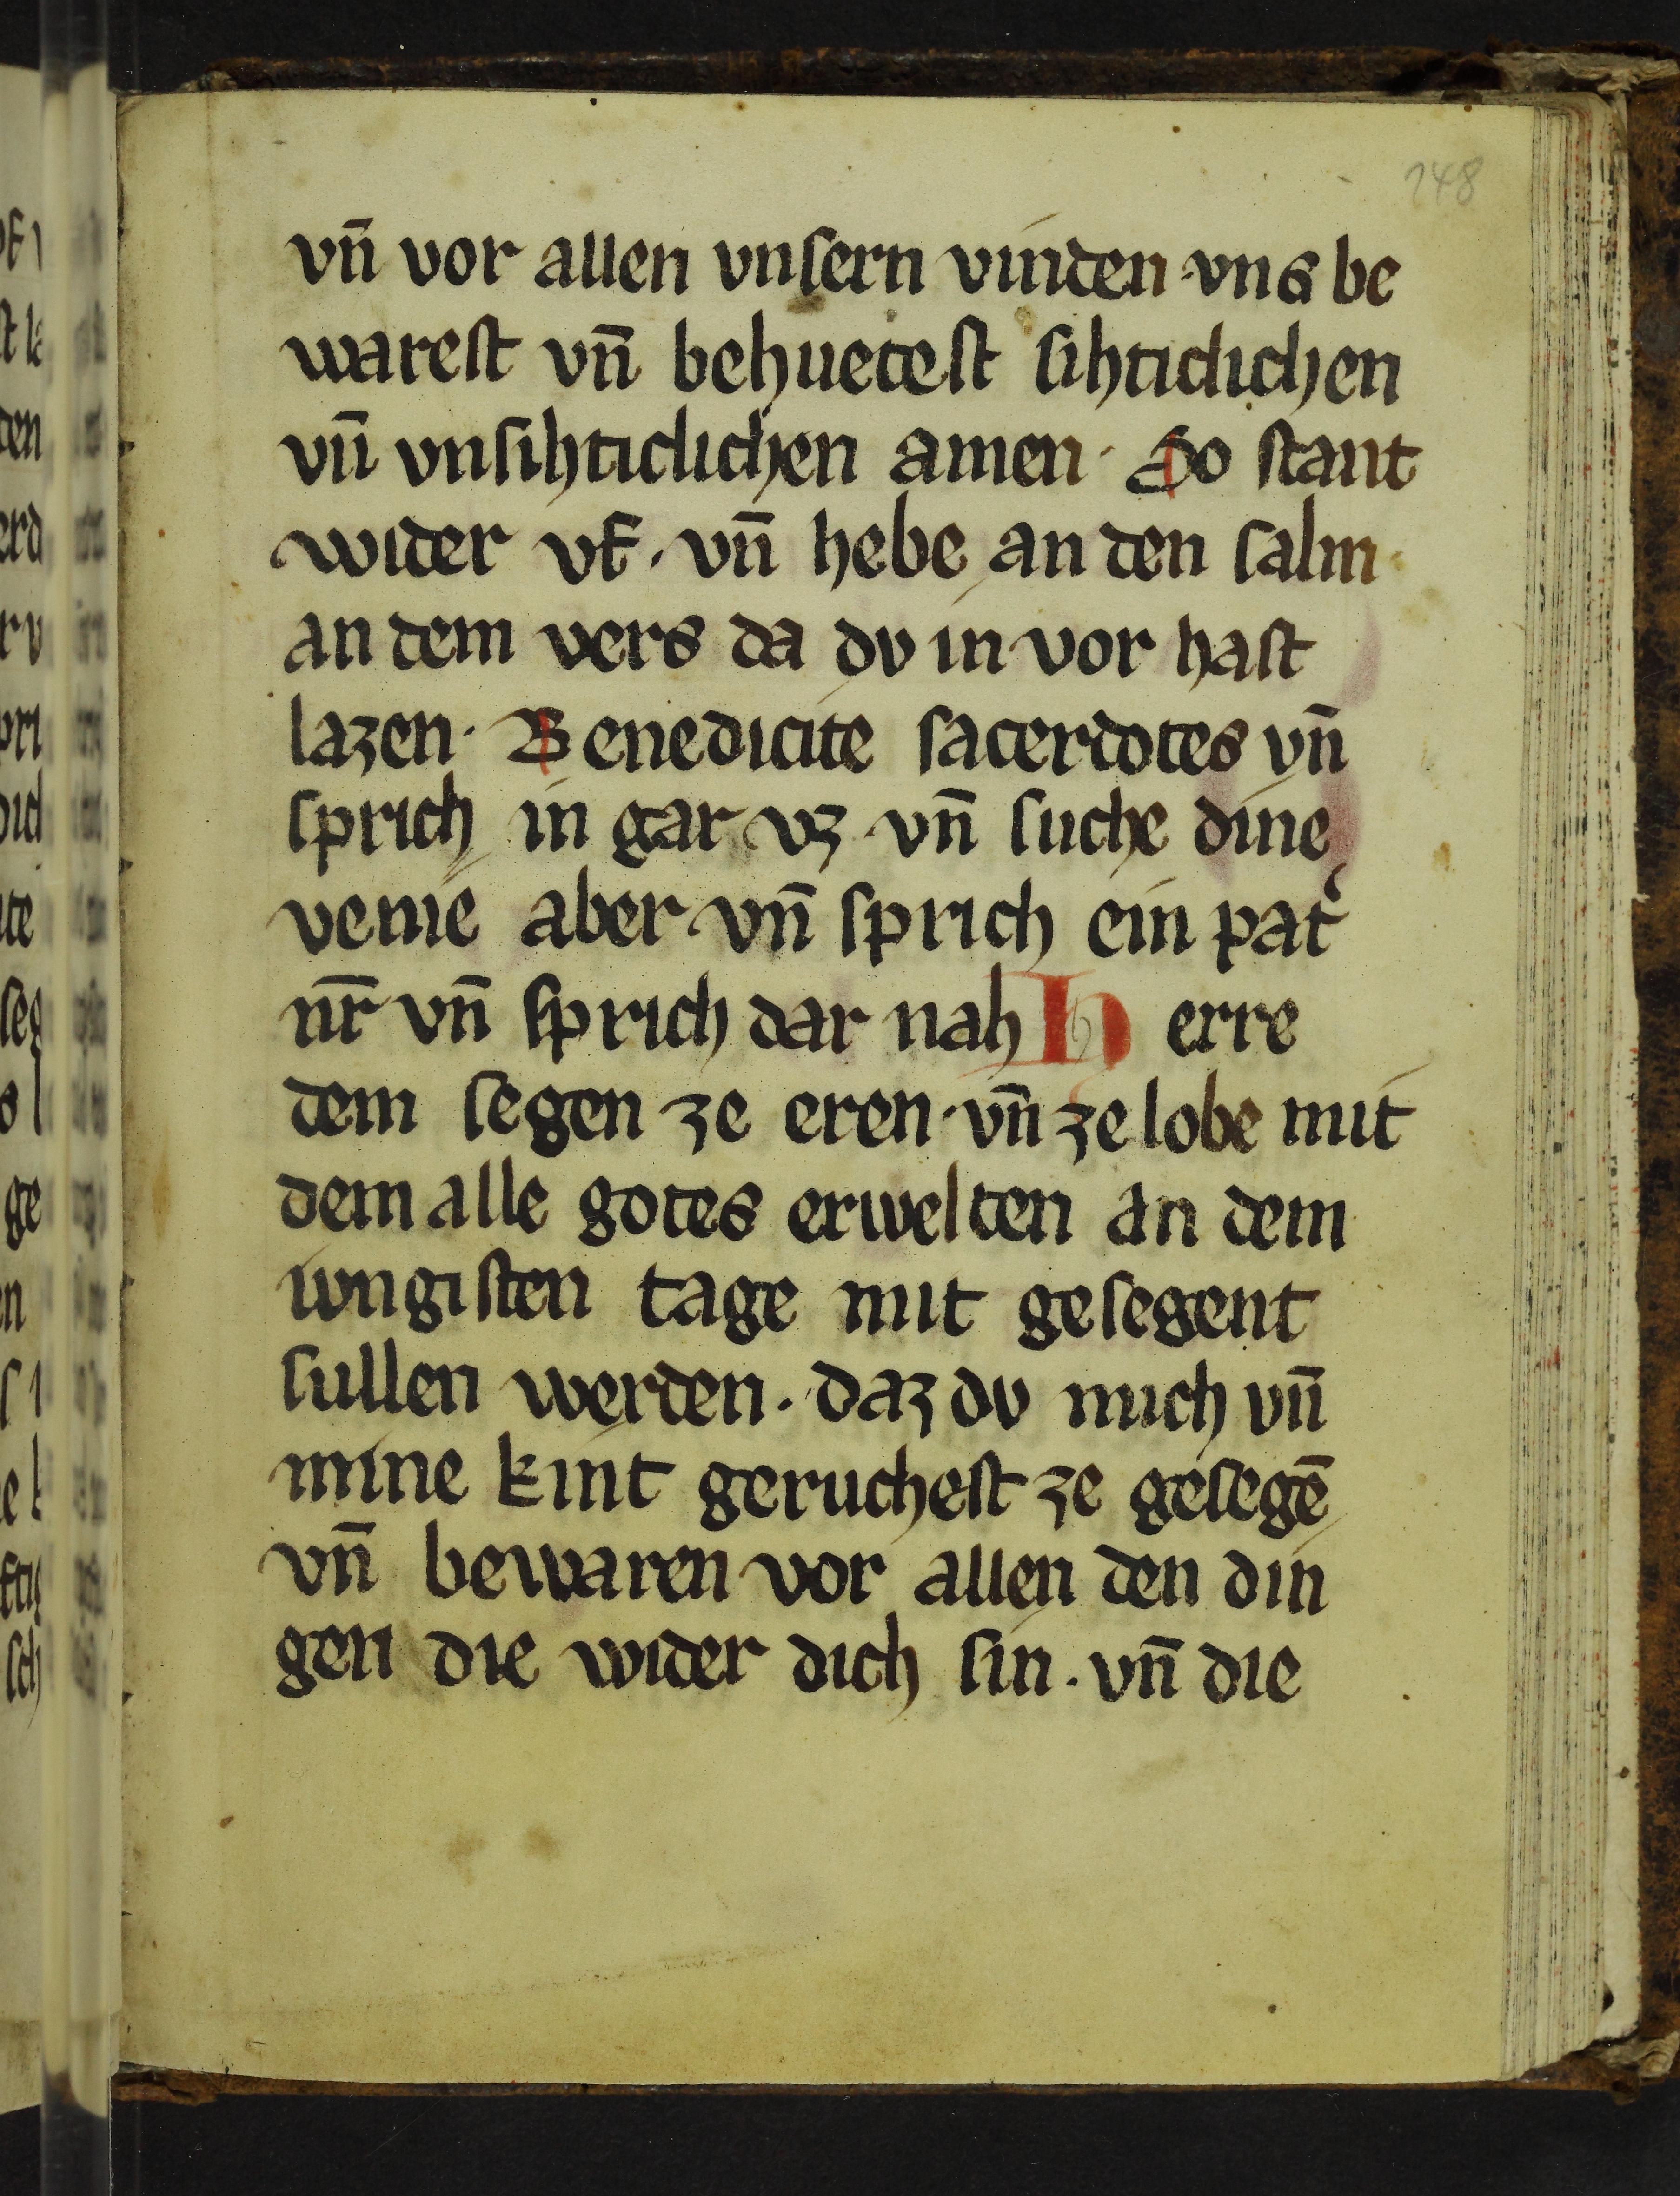 248
vn̄ vor allen vnſern vinden vns be
wareſt vn̄ behueteſt ſihticlichen
vn̄ vnſihticlichen amen · So ſtant
wider vf · vn̄ hebe an den ſalm ·
an dem vers da dv in vor haſt
lazen · Benedicite ſacerdotes vn̄
ſprich in gar vz · vn̄ ſuche dine
venie aber vn̄ ſprich ein pat̛
nr̄ vn̄ ſprich dar nah Herre
dem ſegen ze eren · vn̄ ze lobe mit
dem alle gotes erwelten an dem
ivngiſten tage mit geſegent
ſullen werden · daz dv mich vn̄
mine kint gerucheſt ze geſegē
vn̄ bewaren vor allen den din
gen die wider dich ſin · vn̄ die